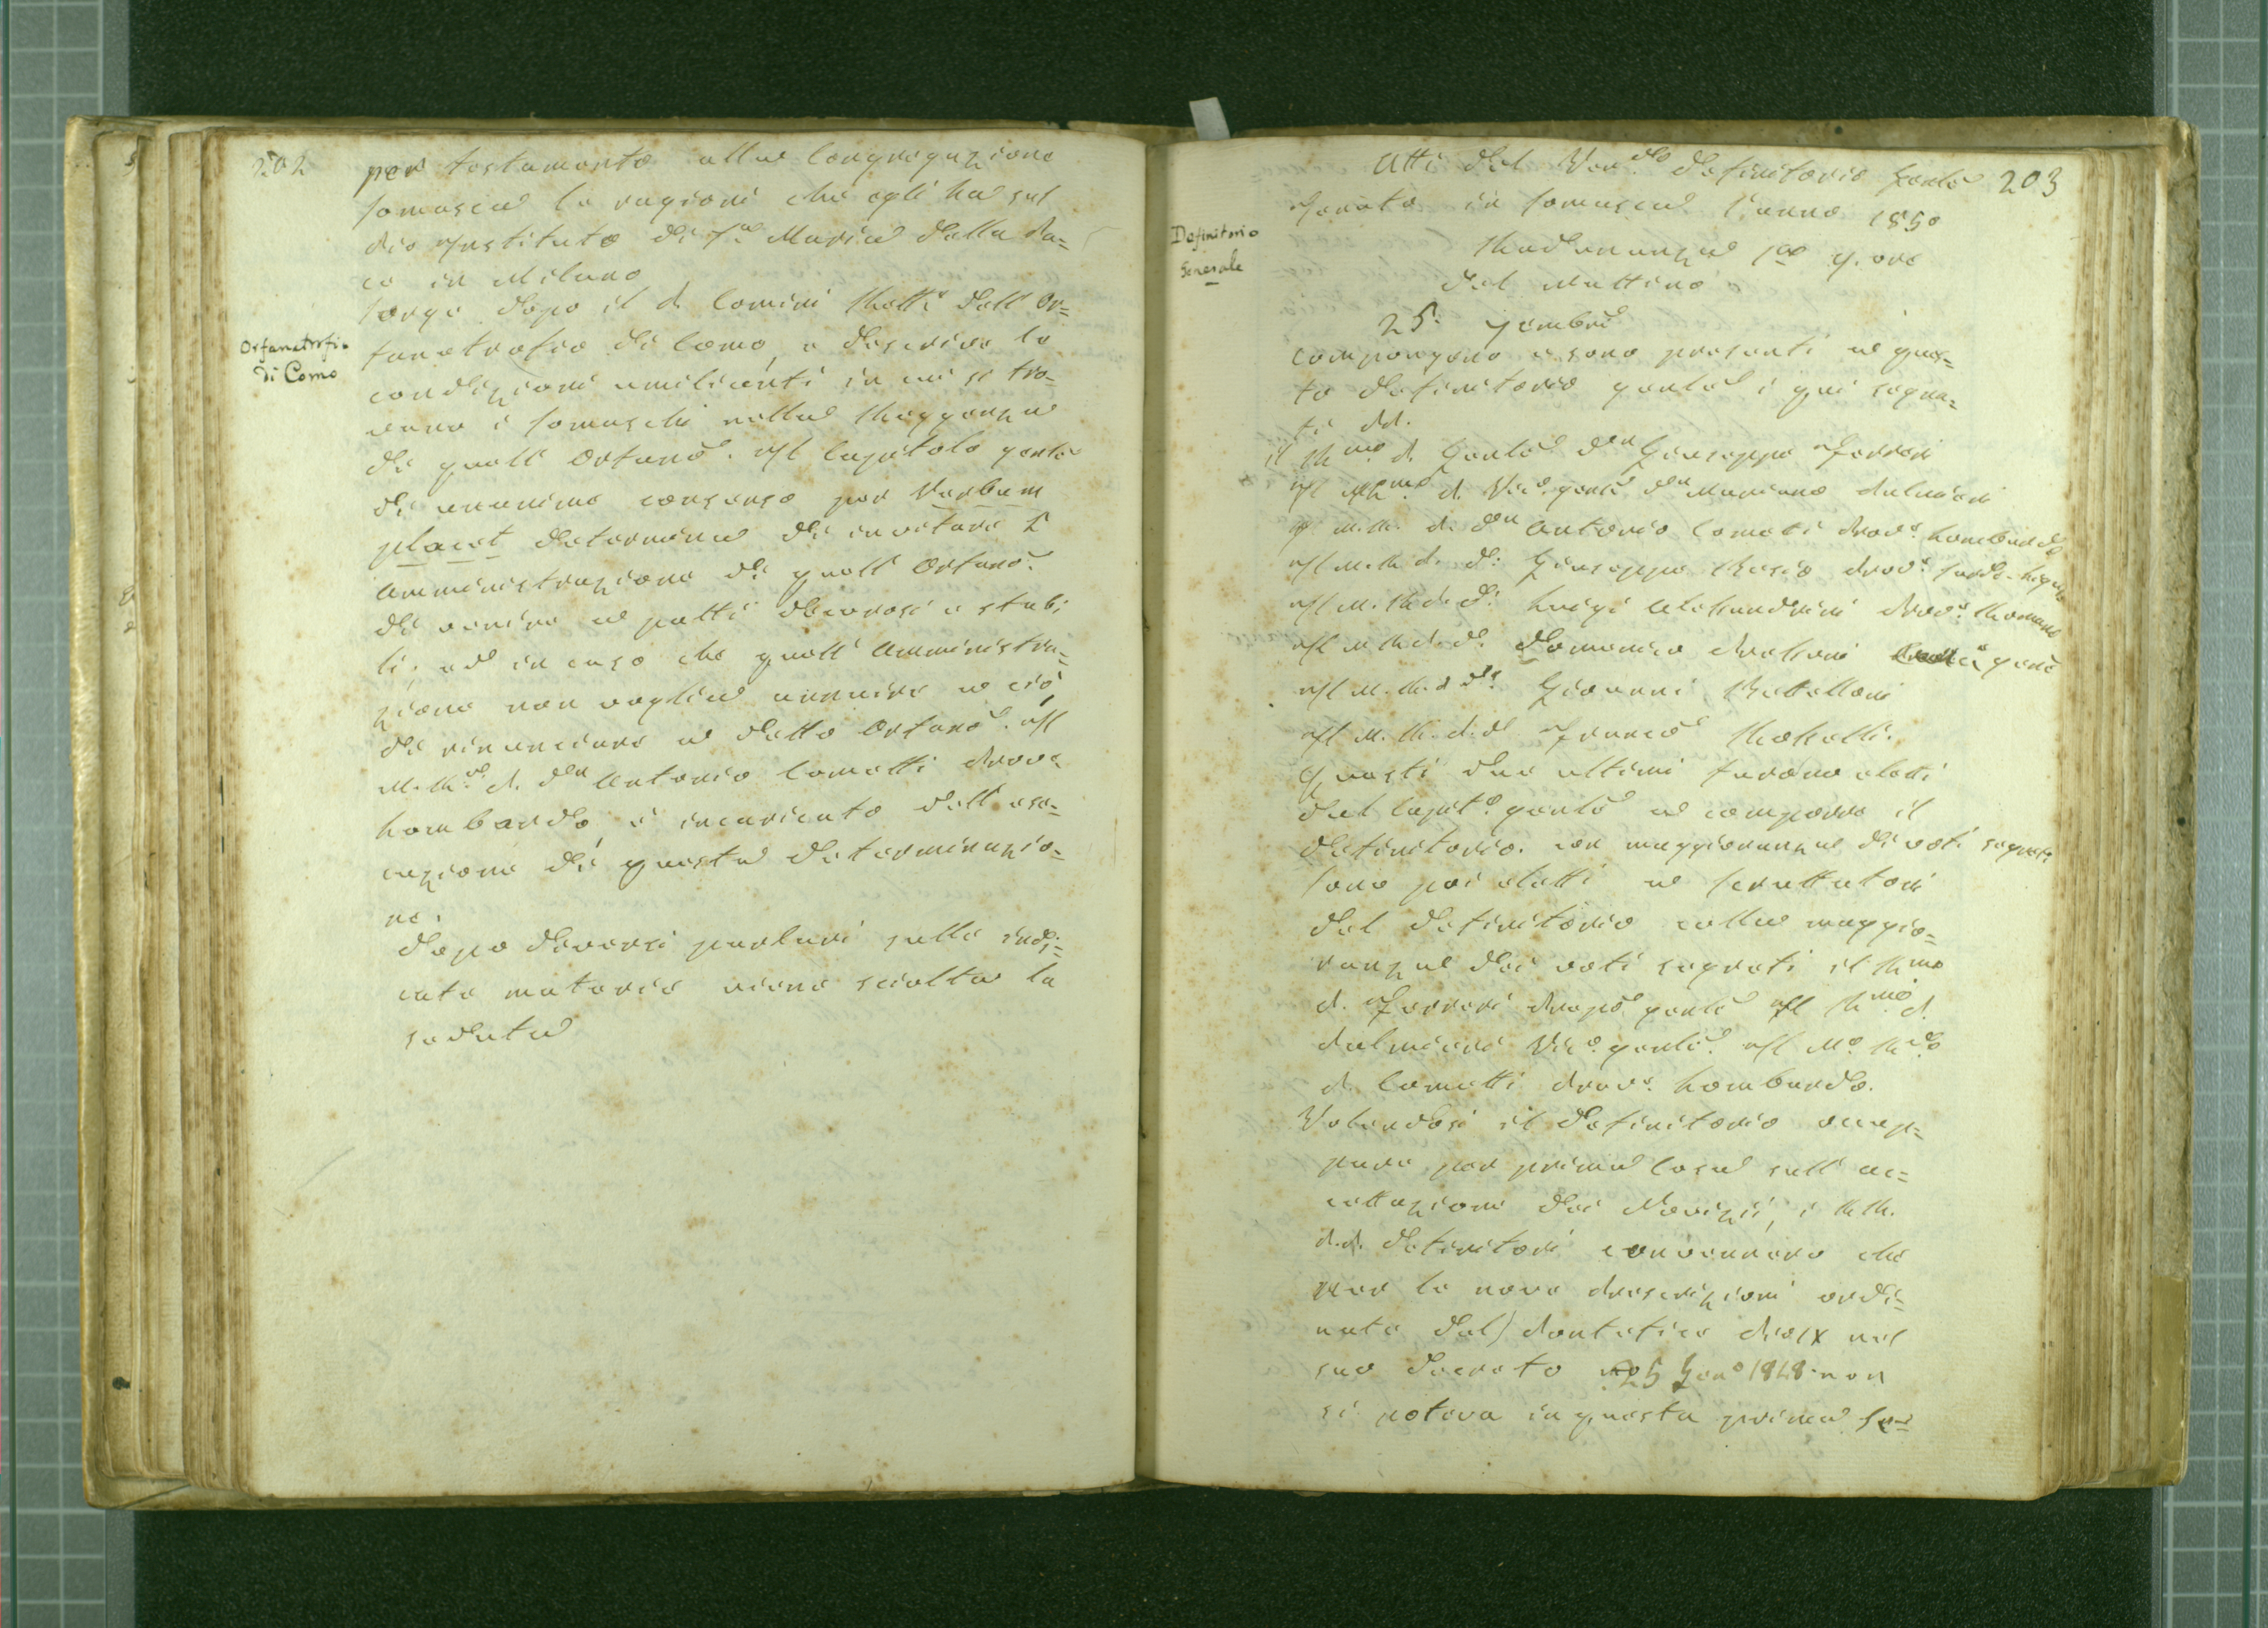 202
per testamento alla Congregazione
Somasca le ragioni che egli ha sul
Pio Instituto di S.a Maria della Pa=
ce in Milano
Sorge dopo il P. Comini Rett.e dell'Or=
Orfanotrofio
di Como
fanotrofio di Como, e descrive le
condizioni umilianti in cui si tro-
vano i Somaschi nella Reggenza
di quell'Orfano.o Il Capitolo gen.le
di unanime consenso per Verbum
placet determina di invitare l'
Amministrazione di quell'Orfano.o
di venire a patti decorosi e stabi
li, ed in caso che quell'Amministra=
zione non voglia venire a ciò,
di rinunciare a detto Orfano.o Il
M. R.do P. D.n Antonio Cometti Prov.e
Lombardo, è incaricato dell'ese=
cuzione di questa determinazio=
ne.
Dopo diversi parlari sulle indi=
cate materie viene sciolta la
seduta
203
Atti del Ven.do Definitorio Gen.le
Tenuto in Somasca l'anno 1850
Definitorio
Generale
Radunanza 1.a
del Mattino
25.
Compongono e sono presenti a ques=
to Definitorio gen.le i qui segna=
ti PP.
Il R.mo P. Gen.le D.n Giuseppe Ferreri
Il R.mo P. Vic.o gen.le D.n Mariano Palmieri
Il M. R. P. D.n Antonio Cometti Prov.e Lombardo
Il M. R. P. D. Giuseppe Besio Prov.e Sardo-Ligure
Il M. R. P. D. Luigi Alessandrini Prov.e Romano
Il M. R. P. D. Domenico
Il M. R. P. D. Giovanni
Il M. R. P. D. Franc.o
Questi due ultimi furono eletti
dal Capit.o gen.le a comporre il
Definitorio. con maggioranza di voti segreti
Sono poi eletti a Scruttatori
del Definitorio colla maggio=
ranza dei voti segreti il R.mo
P. Ferreri Prepo.o gen.le Il R.mo P.
Palmieri Vic.o gen.le Il M.o R.do
P. Cometti Prov.e Lombardo.
Volendosi il Definitorio occup=
pare per prima cosa sull'ac=
cettazione dei Novizii, i RR.
PP. Definitori convennero che
per le nove prescrizioni ordi=
nate dal Pontefice Pio IX nel
suo Decreto 25 Gen.o 1848 non
si poteva in questa prima Se=